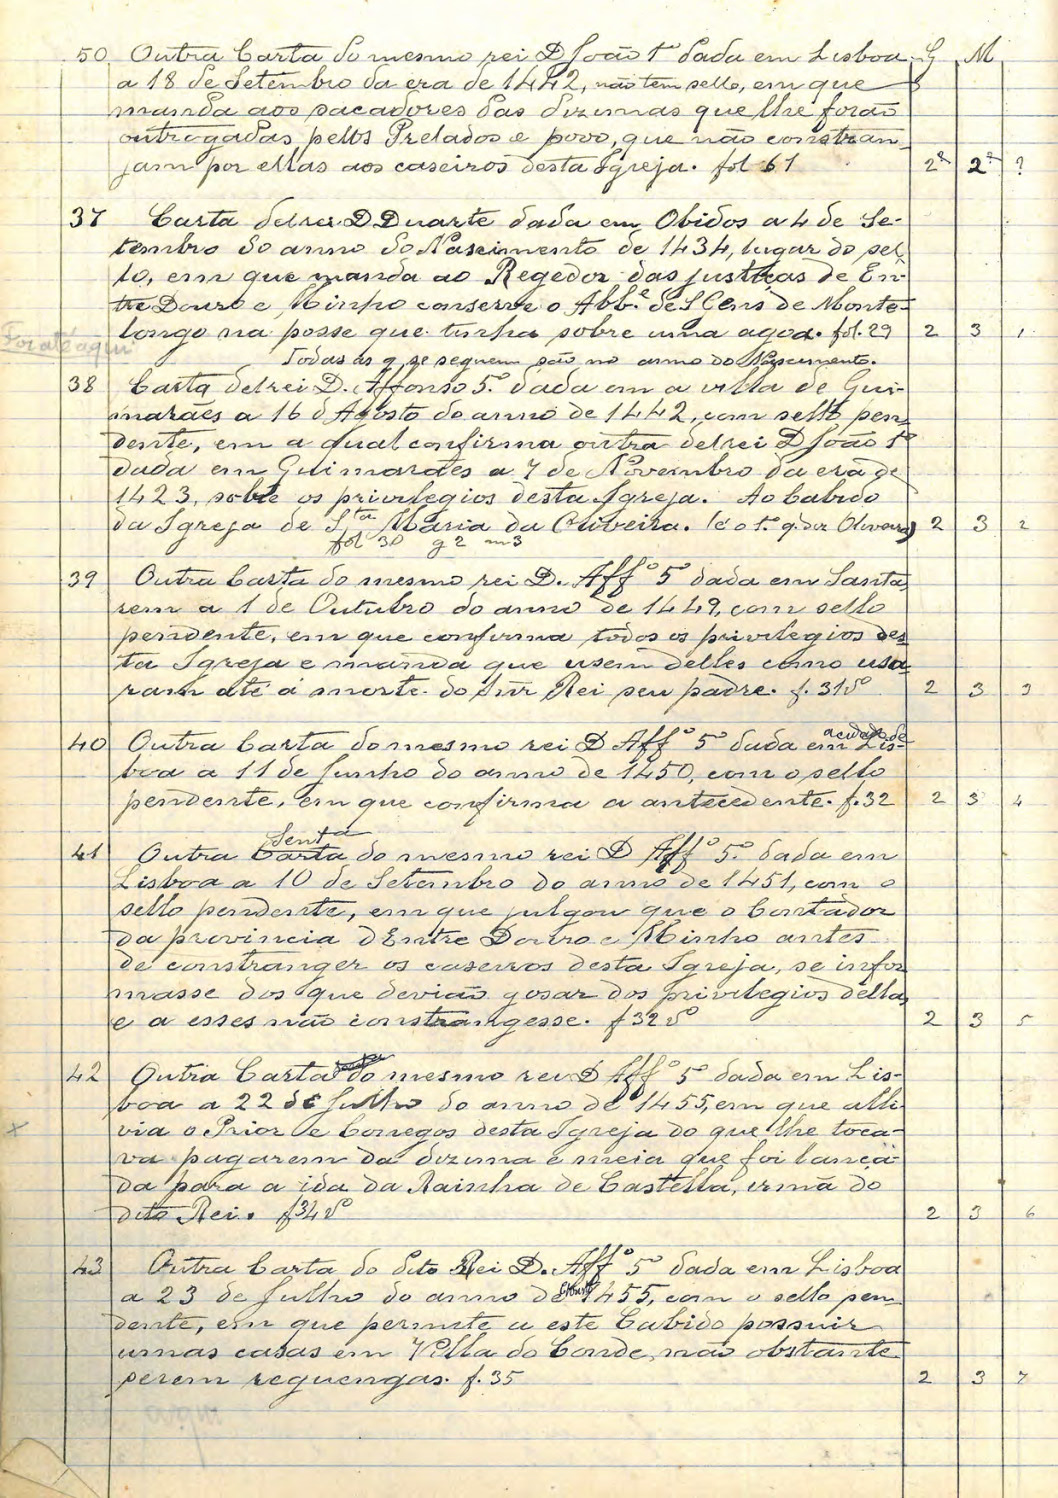 50 Outra Carta do mesmo rei D João 1º dada em Lisboa G M
a 18 de Setembro da era de 1442, não tem sello, em que
manda aos sacadores das dizimas que lhe forão
outrogadas pelos Prelados e povo, que não constran
jam por ellas aos caseiros desta Igreja. fol 61 2ª 2ª ?
37 Carta delrei D Duarte dada em Obidos a 4 de Se-
tembro do anno do Nascimento de 1434, lugar do sel
lo, em que manda ao Regedor das justiças de En-
tre Douro e Minho conserve o Abbᵉ de S Gens de Monte-
longo na posse que tinha sobre uma agoa. fol. 29 2 3 1
Foi até aqui
Todas as q se seguem são no anno do Nascimento.
38 Carta delrei D. Affonso 5.º dada em a villa de Gui-
marães a 16 d Agosto do anno de 1442, com sello pen-
dente, em a qual confirma outra delrei D João 1º
dada em Guimarães a 7 de Novembro da era de
1423, sobre os privilegios desta Igreja. Ao Cabido
da Igreja de Stª Maria da Oliveira. (é o 1.º q. diz Oliveira) 2 3 2
fol 30 g 2 m 3
39 Outra Carta do mesmo rei D. Affº 5º dada em Santa
rem a 1 de Outubro do anno de 1449, com sello
pendente, em que confirma todos os privilegios des
ta Igreja e manda que usem delles como usa
ram até á morte do Snr Rei seu padre. f. 31 vº 2 3 3
40 Outra Carta do mesmo rei D Affº 5º dada em a cidade de Lis-
boa a 11 de Junho do anno de 1450, com o sello
pendente, em que confirma a antecedente. f. 32 2 3 4
Sentª
41 Outra Carta do mesmo rei D Affº 5.º dada em
Lisboa a 10 de Setembro do anno de 1451, com o
sello pendente, em que julgou que o Contador
da provincia d'Entre Douro e Minho antes
de constranger os caseiros desta Igreja, se infor
masse dos que devião gosar dos privilegios della,
e a esses não constrangesse. f 32 vº 2 3 5
42 Outra Carta do mesmo rei D Affº 5º dada em Lis-
boa a 22 de Julho do anno de 1455, em que alli-
via o Prior e Conegos desta Igreja do que lhe toca-
va pagarem da dizima e meia que foi lança
da para a ida da Rainha de Castella, irmã do
dito Rei. f 34 vº 2 3 6
43 Outra Carta do dito Rei D. Affº 5º dada em Lisboa
a 23 de Julho do anno de 1455, com o sello pen-
dente, em que permite a este Cabido possuir
umas casas em Villa do Conde, não obstante
serem reguengas. f. 35 2 3 7